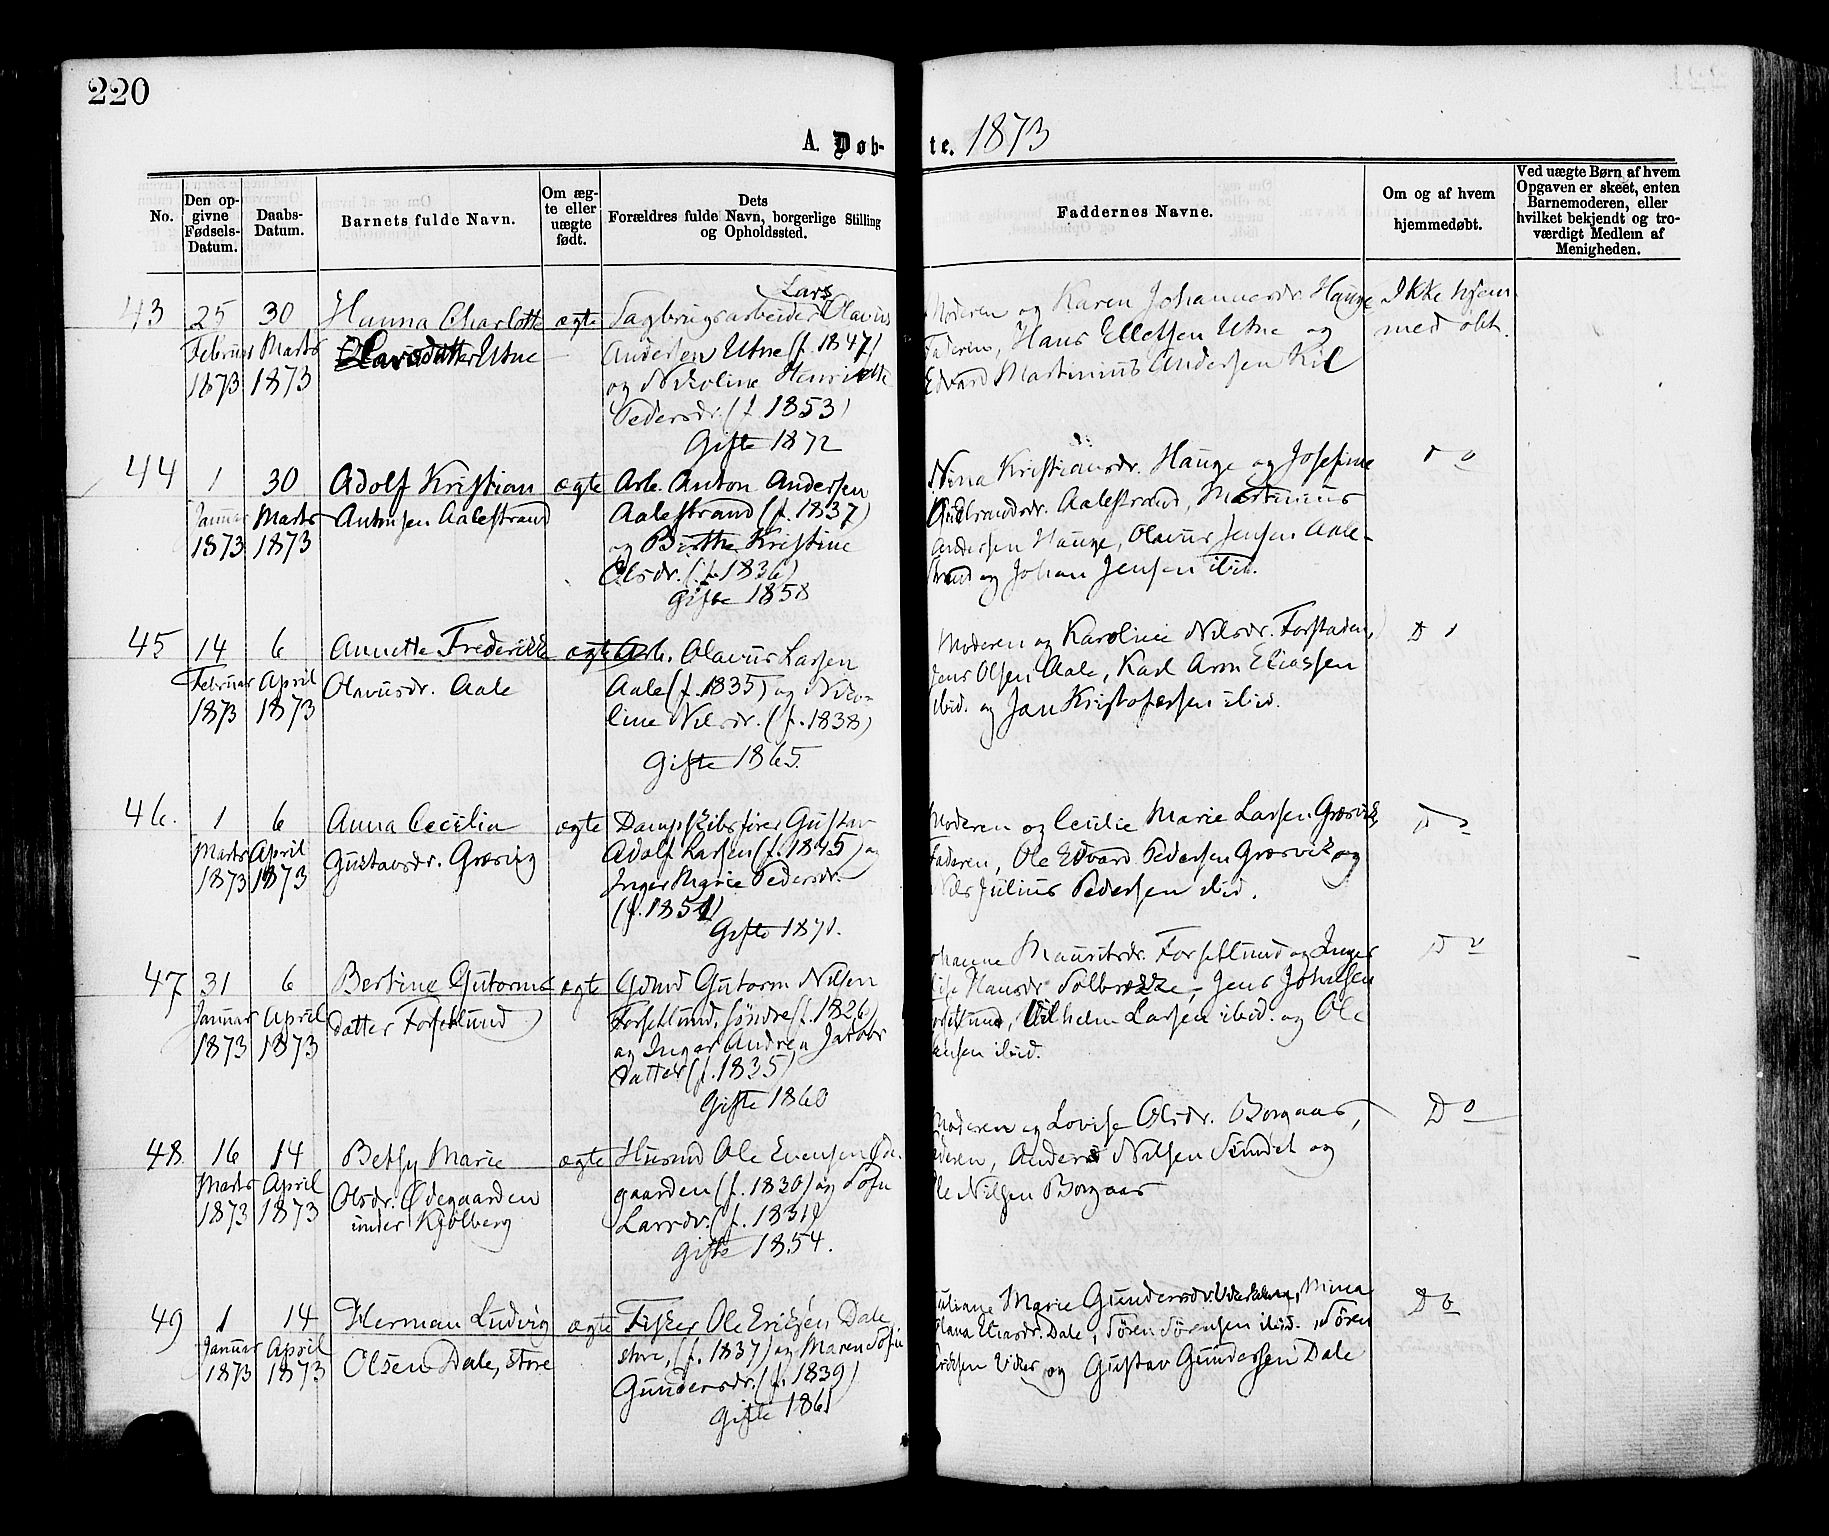 220
A. Døb- te. 1873
No.
Den op-
givne
Fødsels-
Datum.
Daabs-
Datum.
Barnets fulde Navn.
Om æg-
te eller
uægte
født.
Dets
Forældres fulde Navn, borgerlige Stilling
og Opholdssted.
Faddernes Navne.
Om og af hvem
hjemmedøbt.
Ved uægte Børn af hvem
Opgaven er skeet, enten
Barnemoderen, eller
hvilket bekjendt og tro-
værdigt Medlem af
Menigheden.
43
25
Februar
1873
30
Marts
1873
Hanna Charlotte
Larsdatter Utne
ægte
Lars
Sagbrugsarbeider Olavus
Andersen Utne (f. 1847)
og Nikoline Henriette
Pedersdr. (f. 1853)
Gifte 1872
Moderen og Karen Johannesdr. Hauge
Faderen, Hans Ellefsen Utne og
Edvard Martinius Andersen Kil
Ikke hjem
med obt.
44
1
Januar
1873
30
Marts
1873
Adolf Kristian
Antonsen Aalestrand
ægte
Arb. Anton Andersen
Aalestrand (f. 1837)
og Birthe Kristine
Olsdr. (f. 1836)
Gifte 1858
Nina Kristiansdr. Hauge og Josefine
Aalestrand, Martinius
Andersen Hauge, Olavus Jensen Aale-
strand og Johan Jensen ibid.
D o
45
14
Februar
1873
6
April
1873
Annette Frederikke
Olavusdr. Aale
ægte
Arb. Olavus Larsen
Aale (f. 1835) og Niko-
line Nilsdr. (f. 1838)
Gifte 1865.
Moderen og Karoline Nilsdr. Forstaden,
Jens Olsen Aale, Karl Aron Eliassen
ibid. og Jan Kristofersen ibid.
D o
46.
1
Marts
1873
6
April
1873
Anna Cecilia
Gustavsdr. Græsvig
ægte
Dampskibsfører Gustav
Adolf Larsen (f. 1845) og
Inger Marie Pedersdr.
(f. 1851)
Gifte 1871.
Moderen og Cecilie Marie Larsen Græsvik,
Faderen, Ole Edvard Pedersen Græsvik og
Julius Pedersen ibid.
D o
47
31
Januar
1873
6
April
1873
Bertine Gutorms
datter Forsetlund
ægte
Gdmd Gutorm Nilsen
Forsetlund, søndre (f. 1826)
og Inger Andrea Jacobs
datter (f. 1835)
Gifte 1860
Johanne Mauritsdr. Forsetlund og Inger
Lise Hansdr. Solbrække, Jens Johnsen
Forsetlund, Vilhelm Larsen ibid. og Ole
Hansen ibid.
D o
48
16
Marts
1873
14
April
1873
Betsy Marie
Olsdr. Ødegaarden
under Kjølberg
ægte
Husmd Ole Evensen Øde-
gaarden (f. 1830) og Sofie
Larsdr. (f. 1831)
Gifte 1854.
Moderen og Lovise Olsdr. Borgaas,
Faderen, Anders Nilsen Sundet og
Ole Nilsen Borgaas
D o
49
1
Januar
1873
14
April
1873
Herman Ludvig
Olsen Dale, store
ægte
Fisker Ole Eriksen Dale
store, (f. 1837) og Maren Sofie
Gundersdr. (f. 1839)
Gifte 1861
Juliane Marie Gundersdr. Mina
Olava Eliasdr. Dale, Søren Sørensen ibid., Søren
Eriksen Viker og Gustav Gundersen Dale
D o